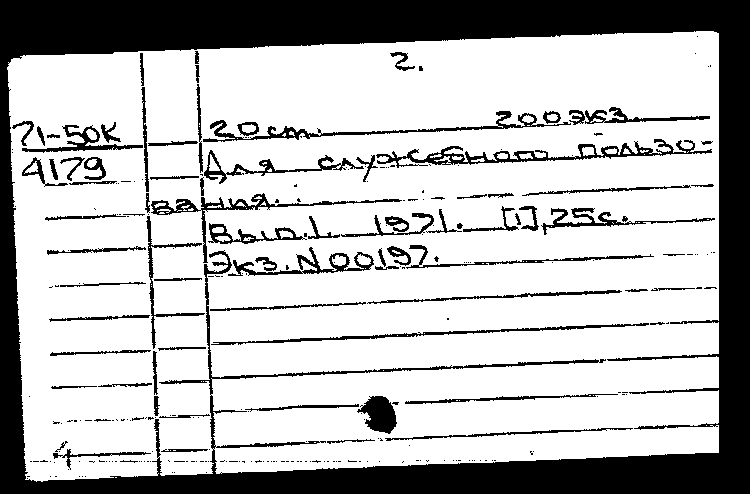 2.
71-50К 20 cm. 200 экз.
4179 Для служебного пользо-
вания.
Вып.1. 1971. [1], 25с.
Экз. N 00197.
4